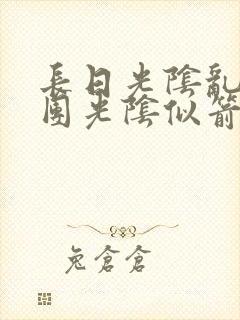 長日光陰亂
團光陰似箭
兔倉倉